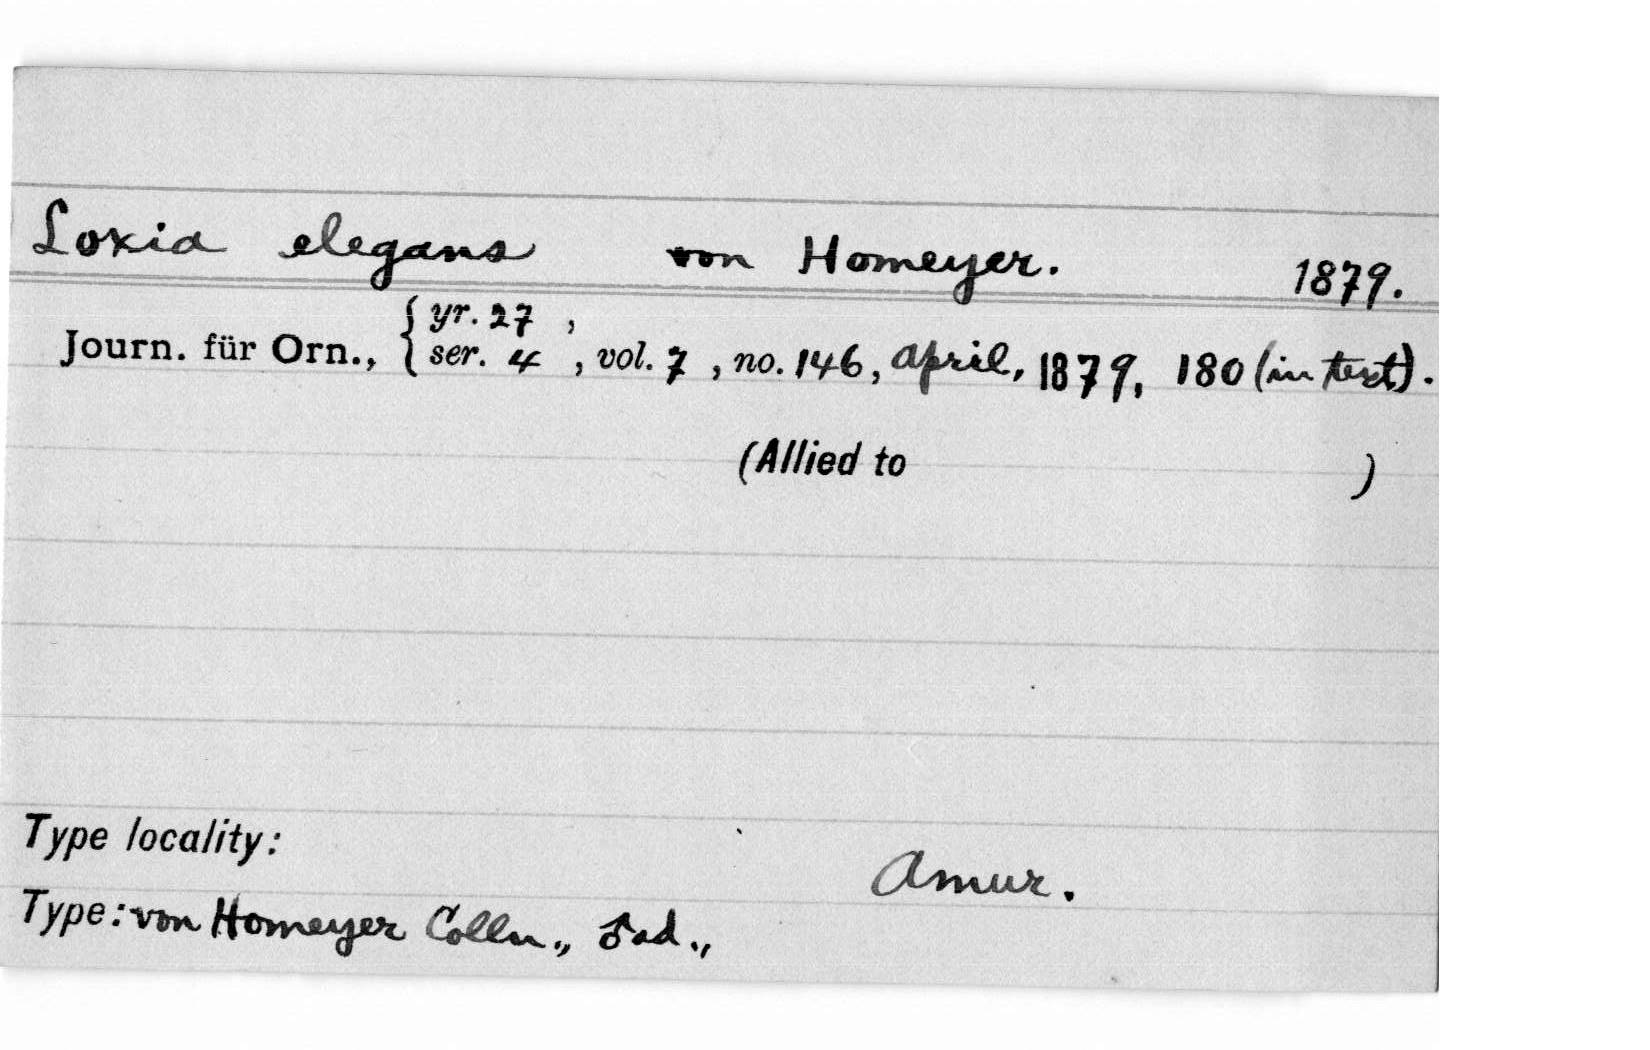 Loxia elegans von Homeyer. 1879.
Journ. für Orn., { yr. 27 ,
ser. 4 , vol. 7 , no. 146, April, 1879, 180 (in text).
(Allied to )
Type locality:
Amur.
Type: von Homeyer Colln., ♂ ad.,